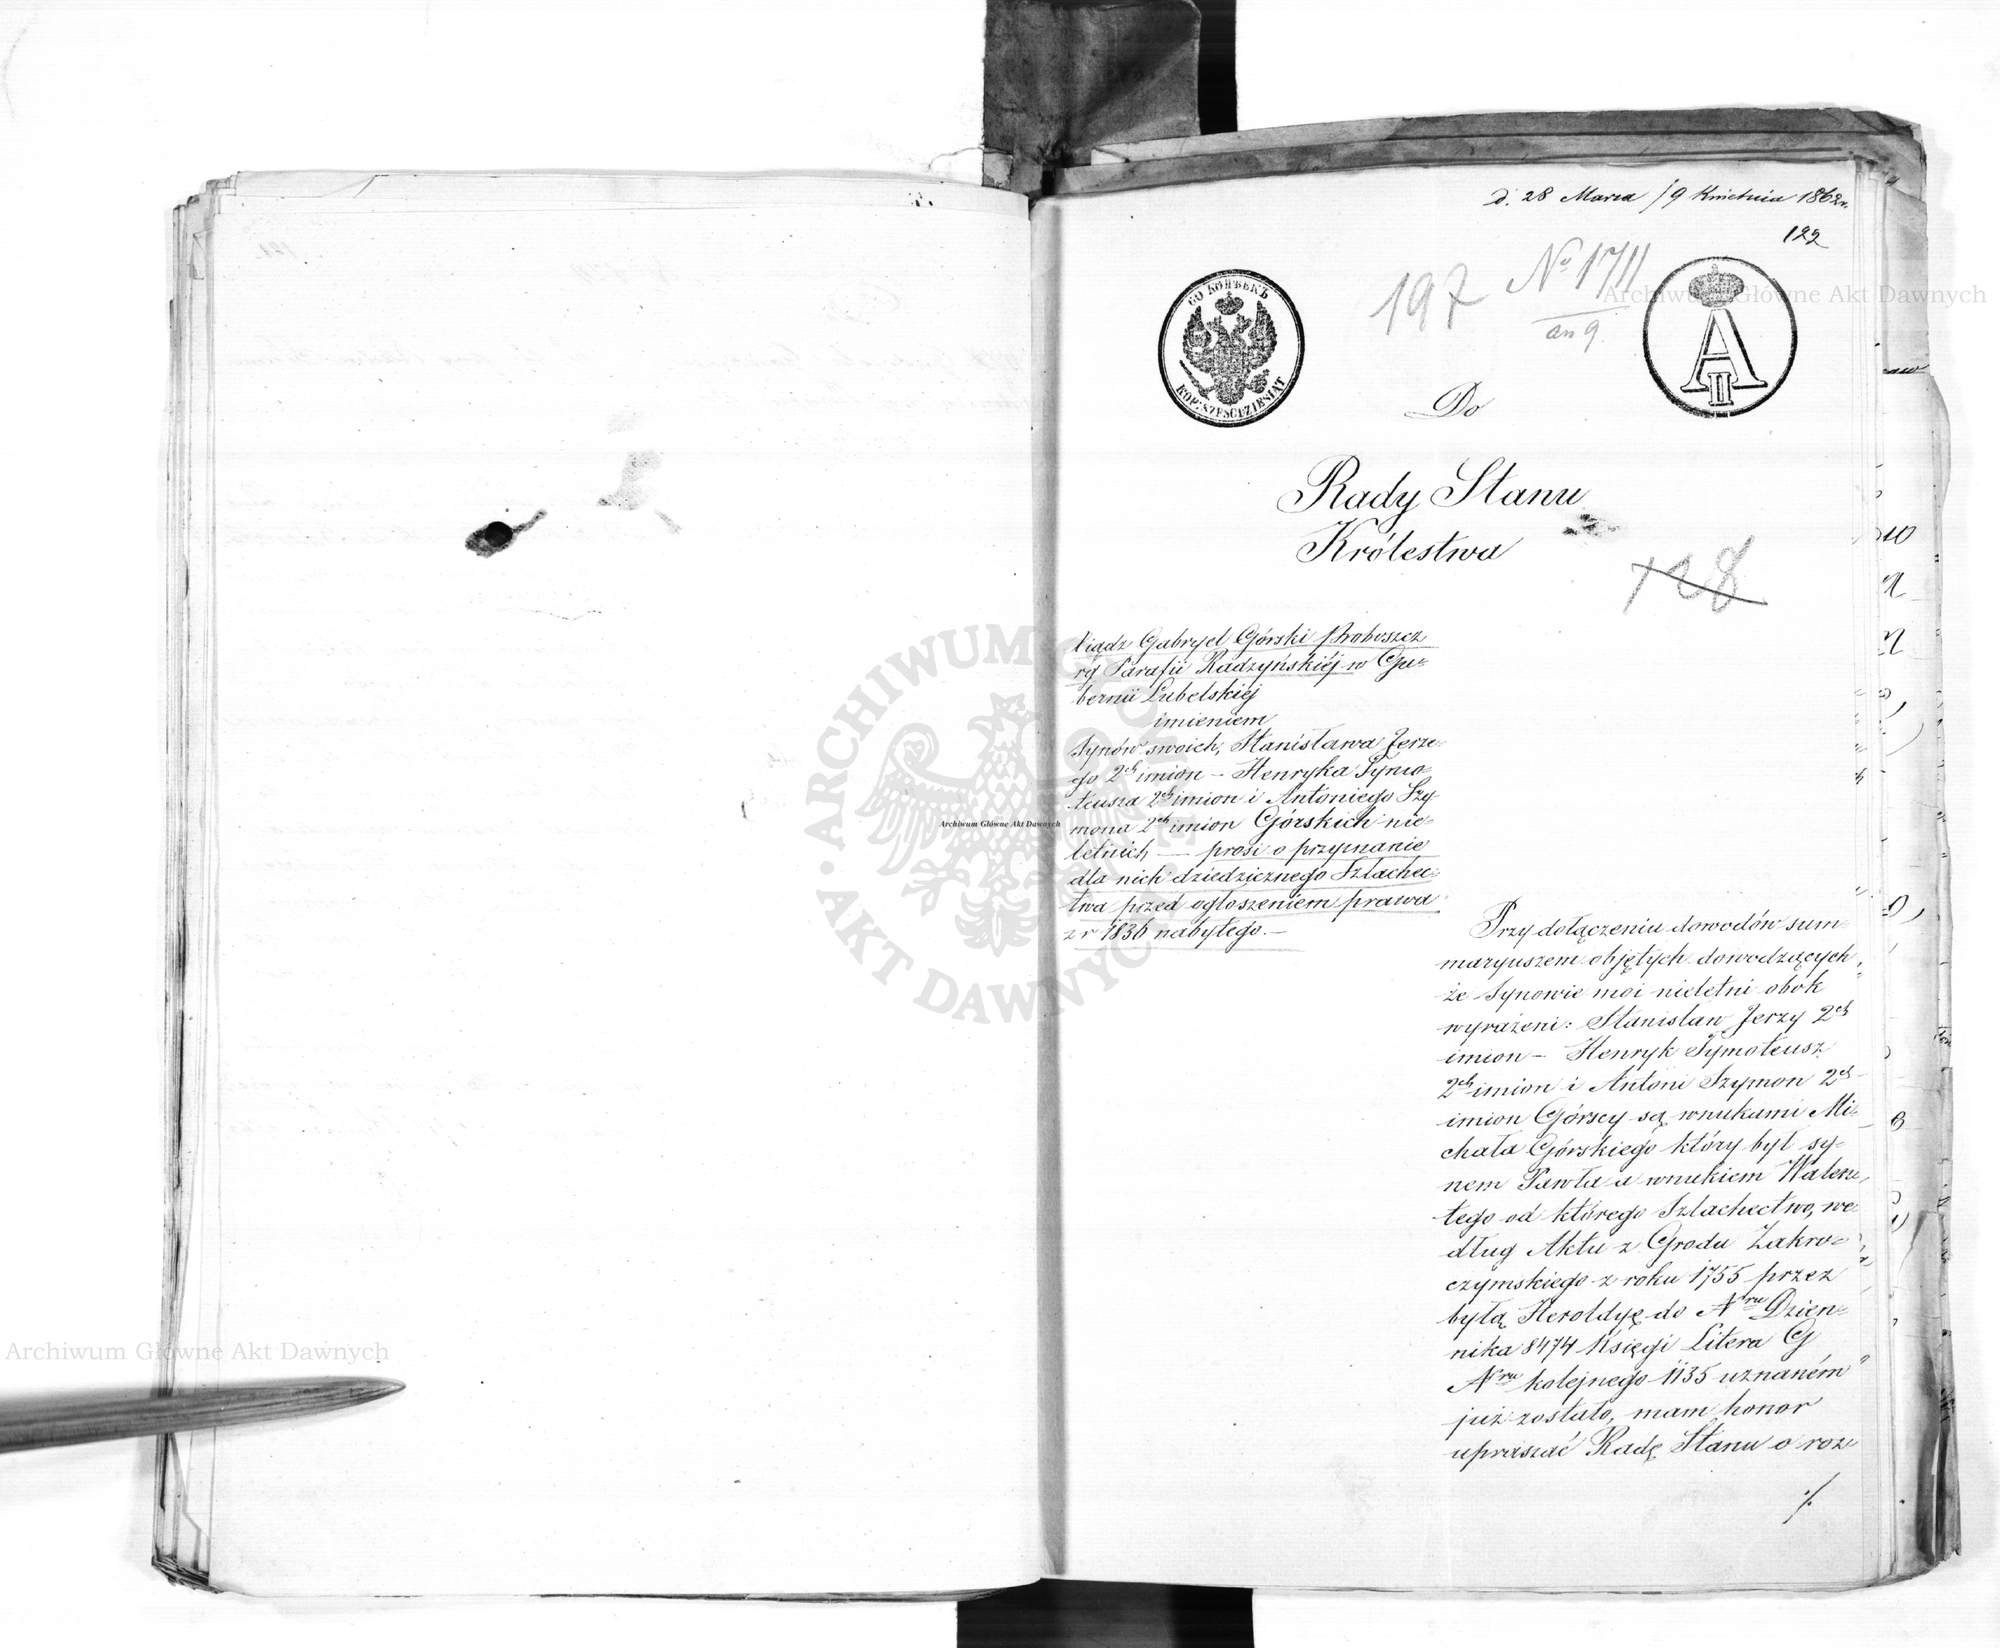 d. 28 Marca / 9 Kwietnia 1862 r.
122
197 No 1711
an 9.
60 КОПѢЕКЪ
KOP. SZESCDZIESIAT
A II
Do
Rady Stanu
Królestwa
128
Xiądz Gabryel Górski Proboszcz
rg Parafii Radzyńskiéj w Gu=
bernii Lubelskiej
imieniem
Synów swoich, Stanisława Jerze=
go 2ch imion – Henryka Tymo=
teusza 2ch imion i Antoniego Szy
mona 2ch imion Górskich nie=
letnich — prosi o przyznanie
dla nich dziedzicznego Szlachec=
twa przed ogłoszeniem prawa
z r 1836 nabytego. –
Przy dołączeniu dowodów sum
maryuszem objętych dowodzących
że Synowie moi nieletni obok
wyrażeni: Stanisław Jerzy 2ch
imion – Henryk Tymoteusz
2ch imion i Antoni Szymon 2ch
imion Górscy są wnukami Mi=
chała Górskiego który był sy=
nem Pawła a wnukiem Walen=
tego od którego Szlachectwo, we=
dług Aktu z Grodu Zakro=
czymskiego z roku 1755 przez
byłą Heroldyę do Nru Dzien=
nika 8474 Księgi Litera G
Nru kolejnego 1135 uznaném
już zostało, mam honor
upraszać Radę Stanu o roz
./.
Archiwum Główne Akt Dawnych
Archiwum Główne Akt Dawnych
Archiwum Główne Akt Dawnych
ARCHIWUM GŁÓWNE AKT DAWNYCH